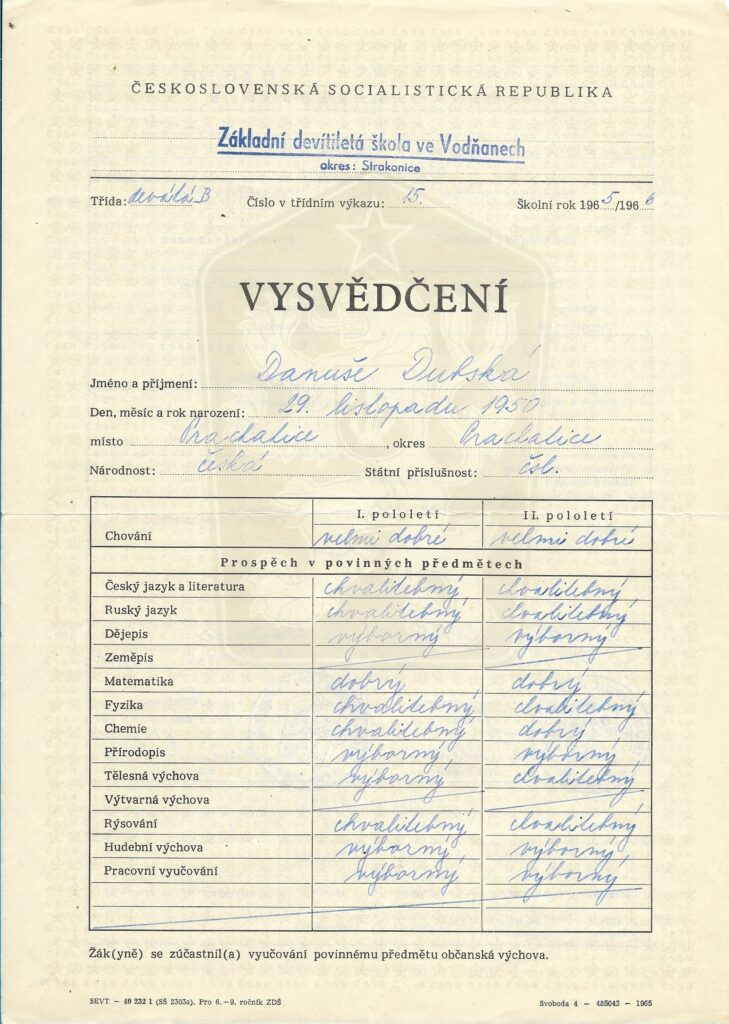 ČESKOSLOVENSKÁ SOCIALISTICKÁ REPUBLIKA
Základní devítiletá škola ve Vodňanech
okres: Strakonice
Třída: devátá B Číslo v třídním výkazu: 15. Školní rok 1965/1966
VYSVĚDČENÍ
Jméno a příjmení: Danuše Dubská
Den, měsíc a rok narození: 29. listopadu 1950
místo Prachatice, okres Prachatice
Národnost: česká Státní příslušnost: čsl.
I. pololetí II. pololetí
Chování velmi dobré velmi dobré
Prospěch v povinných předmětech
Český jazyk a literatura chvalitebný chvalitebný
Ruský jazyk chvalitebný chvalitebný
Dějepis výborný výborný
Zeměpis
Matematika dobrý dobrý
Fyzika chvalitebný chvalitebný
Chemie chvalitebný dobrý
Přírodopis výborný výborný
Tělesná výchova výborný chvalitebný
Výtvarná výchova
Rýsování chvalitebný chvalitebný
Hudební výchova výborný výborný
Pracovní vyučování výborný výborný
Žák(yně) se zúčastnil(a) vyučování povinnému předmětu občanská výchova.
SEVT – 49 232 1 (SŠ 2303a). Pro 6.–9. ročník ZDŠ Svoboda 4 – 485043 – 1965